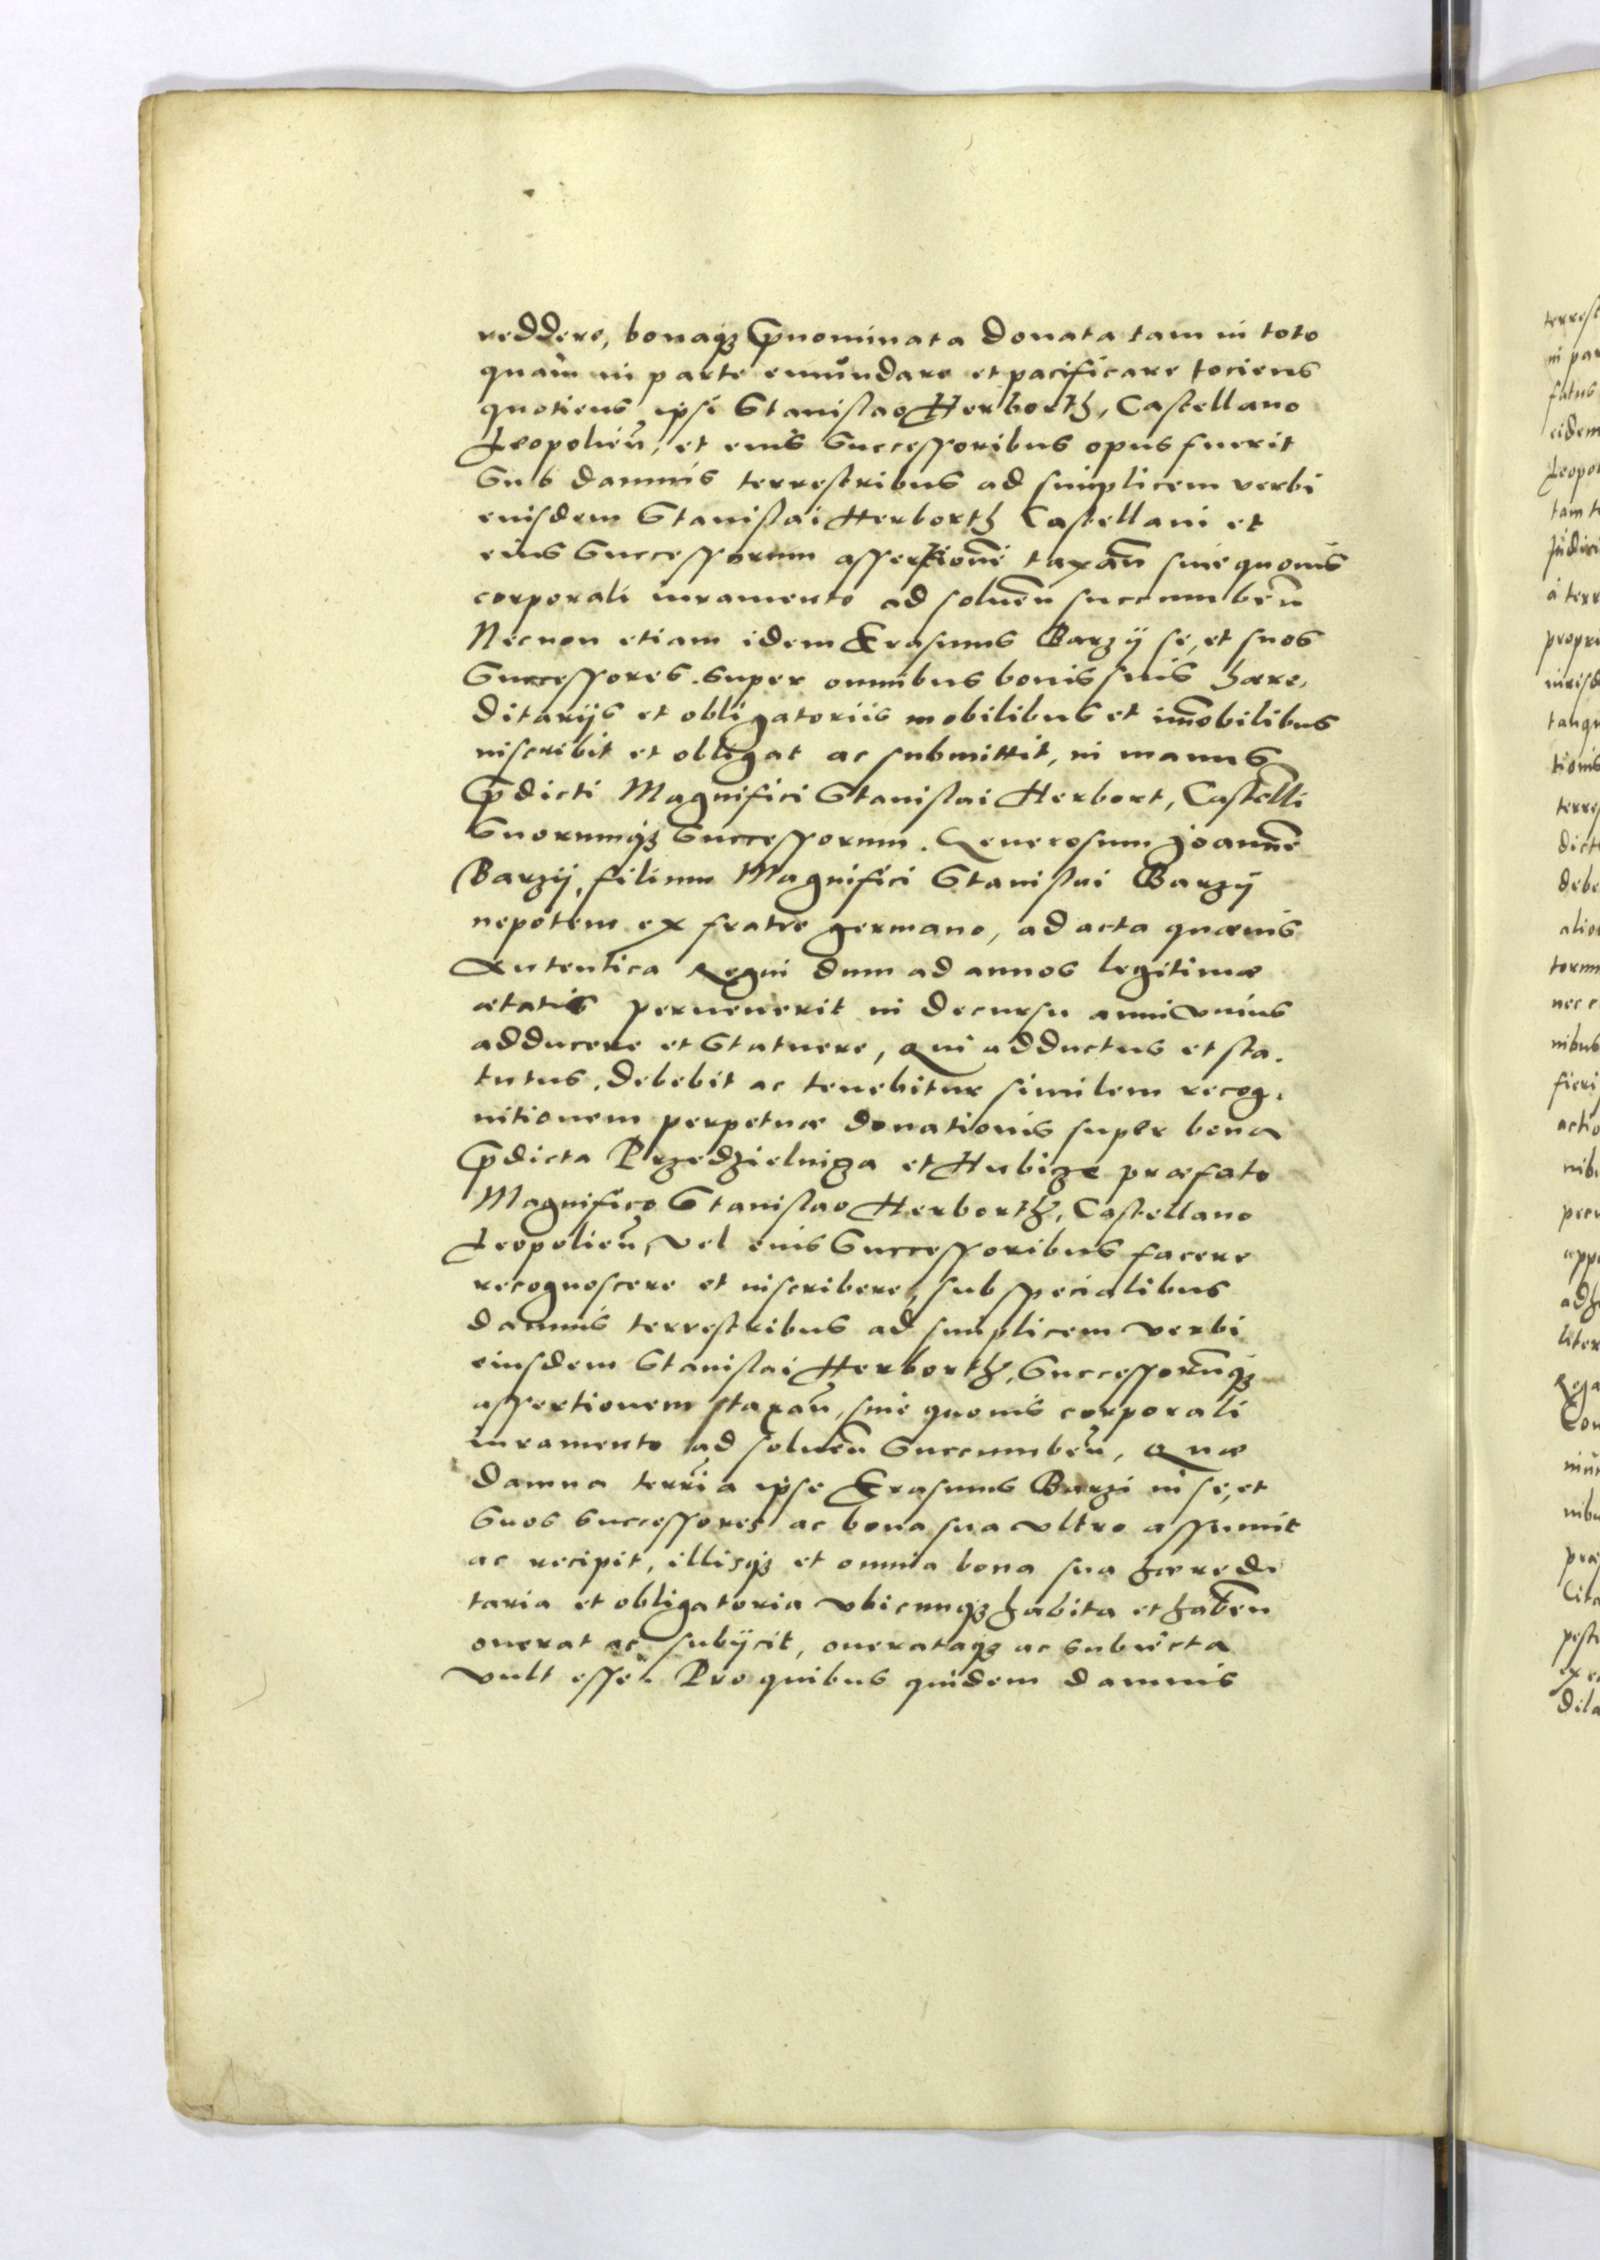 reddere, bonaq[ue] p̄nominata donata tam in toto
quam in parte emundare et pacificare tociens
quotiens ipsi Stanislao Herborth, Castellano
Leopolień, et eius Successoribus opus fuerit
Sub damnis terrestribus ad simplicem verbi
eiusdem Stanislai Herborth Castellani et
eius Successorum assertionē taxań sine quovis
corporali iuramento ad solueń succumbeń
Necnon etiam idem Erasmus Barzÿ se, et suos
Successores super omnibus bonis suis hære,
ditarijs et obligatoriis mobilibus et im̄obilibus
inscribit et obligat ac submittit, in manus
p̄dicti Magnifici Stanislai Herbort, Castelli
Suorumq[ue] Successorum. Generosum Joannē
Barzÿ, filium Magnifici Stanislai Barzÿ
nepotem ex fratre germano, ad acta quævis
Autentica Regni dum ad annos legitimæ
ætatis peruenerit in decursu anni vnius
adducere et Statuere, Qui adductus et sta.
tutus, debebit ac tenebitur similem recog,
nitionem perpetuæ donationis super bona
p̄dicta Przedzielniza et Hubize præfato
Magnifico Stanislao Herborth, Castellano
Leopolień, vel eius Successoribus facere
recognoscere et inscribere, sub specialibus
damnis terrestribus ad simplicem verbi
eiusdem Stanislai Herborth, Successorūq[ue]
assertionem staxań, sine quovis corporali
iuramento ad solueń Succumbeń, Quæ
damna terrīa ipse Erasmus Barzi in se, et
Suos successores ac bona sua vltro assumit
ac recipit, illisq[ue] et omnia bona sua hæredi
taria et obligatoria vbicunq[ue] habita et habeń
onerat ac subÿcit, onerataq[ue] ac subiecta
vult esse. Pro quibus quidem damnis